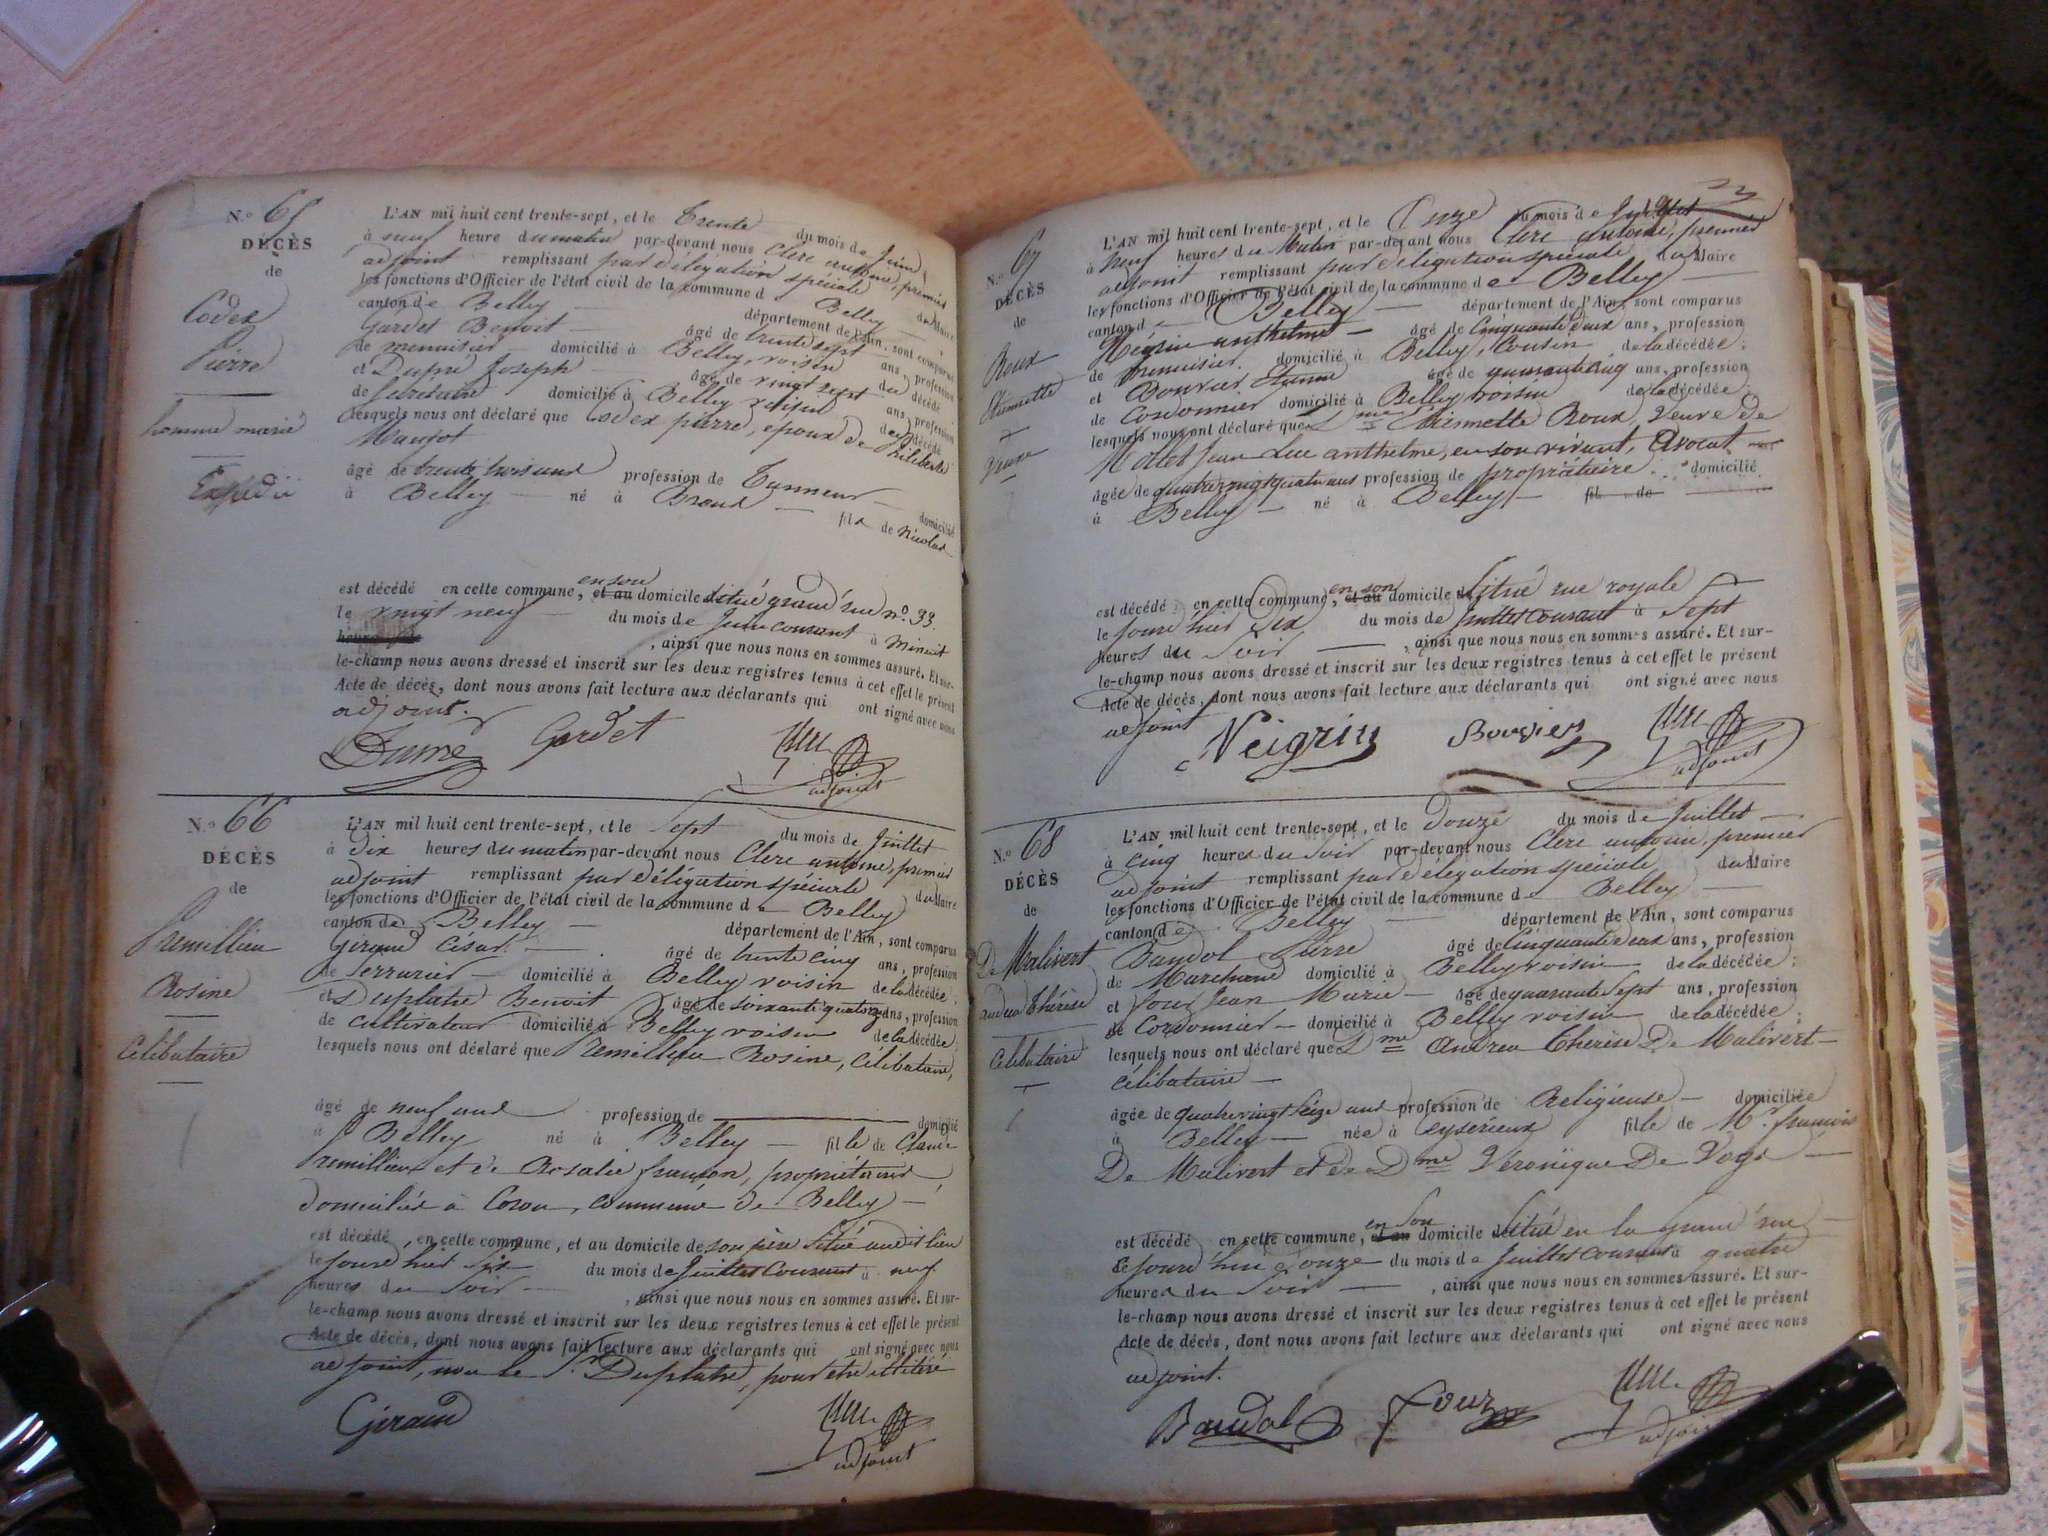 N.o 65
DÉCÈS
de
Codex
Pierre
homme marié
Expédié
L'AN mil huit cent trente-sept, et le Trente du mois de Juin
à neuf heure du matin par-devant nous Clerc antoine, premier
adjoint remplissant par délégation spéciale du Maire
les fonctions d'Officier de l'état civil de la commune de Belley
canton de Belley département de l'Ain, sont comparus
Gardet Benoit âgé de trente sept ans, profession
de menuisier domicilié à Belley, voisin du décédé
et Dupré Joseph âgé de vingt sept ans, profession
de Secrétaire domicilié à Belley voisin du décédé
lesquels nous ont déclaré que Codex pierre, époux de Philiberte
Maujot
âgé de trente trois ans profession de Tanneur domicilié
à Belley né à fils de Nicolas
est décédé en cette commune, en son et au domicile situé grand'rue n.o 33.
le vingt neuf du mois de Juin courant à minuit
, ainsi que nous nous en sommes assuré. Et sur-
le-champ nous avons dressé et inscrit sur les deux registres tenus à cet effet le présent
Acte de décès, dont nous avons fait lecture aux déclarants qui ont signé avec nous
adjoint.
Gardet
adjoint
N.o 66
DÉCÈS
de
Premillieu
Rosine
Célibataire
L'AN mil huit cent trente-sept, et le Sept du mois de Juillet
à dix heures du matin par-devant nous Clerc antoine, premier
adjoint remplissant par délégation spéciale du Maire
les fonctions d'Officier de l'état civil de la commune de Belley
canton de Belley département de l'Ain, sont comparus
Giraud César âgé de trente cinq ans, profession
de Serrurier domicilié à Belley voisin de la décédée
et Duplatre Benoit âgé de soixante quatorze ans, profession
de cultivateur domicilié à Belley voisin de la décédée
lesquels nous ont déclaré que Premillieu Rosine, Célibataire,
âgé de neuf ans profession de domicilié
à Belley né à Belley fille de Claude
Premillieu et de Rosalie françon, propriétaires
domiciliés à Coron, commune de Belley
est décédé, en cette commune, et au domicile de son père situé audit lieu
le jour d'hier six du mois de Juillet Courant à neuf
heures du Soir , ainsi que nous nous en sommes assuré. Et sur-
le-champ nous avons dressé et inscrit sur les deux registres tenus à cet effet le présent
Acte de décès, dont nous avons fait lecture aux déclarants qui ont signé avec nous
adjoint, non le S.r Duplatre, pour être illitéré
Giraud
adjoint
N.o 67
DÉCÈS
de
Roux
Thiennette
Veuve
L'AN mil huit cent trente-sept, et le Onze du mois de Juillet
à neuf heures du Matin par-devant nous Clerc antoine, premier
adjoint remplissant par délégation spéciale du Maire
les fonctions d'Officier de l'état civil de la commune de Belley
canton d Belley département de l'Ain, sont comparus
Négrin anthelme âgé de Cinquante deux ans, profession
de menuisier domicilié à Belley, Cousin de la décédée;
et Bouvier Etienne âgé de quarante cinq ans, profession
de Cordonnier domicilié à Belley voisin de la décédée;
lesquels nous ont déclaré que Dme Thiennette Roux, Veuve de
Jean Luc anthelme, en son vivant, Avocat
âgée de quatre vingt quatre ans profession de propriétaire domicilié
à Belley né à Belley fil de
est décédé en cette commune, en son et au domicile situé rue royale
le jour d'hier dix du mois de Juillet courant à Sept
heures du Soir , ainsi que nous nous en sommes assuré. Et sur-
le-champ nous avons dressé et inscrit sur les deux registres tenus à cet effet le présent
Acte de décès, dont nous avons fait lecture aux déclarants qui ont signé avec nous
adjoint
Neigrin Bouvier
adjoint
N.o 68
DÉCÈS
de
De Malivert
andrea Thérèse
Célibataire
L'AN mil huit cent trente-sept, et le Douze du mois de Juillet
à Cinq heures du Soir par-devant nous Clerc antoine, premier
adjoint remplissant par délégation spéciale du Maire
les fonctions d'Officier de l'état civil de la commune de Belley
canton de Belley département de l'Ain, sont comparus
Baudol Pierre âgé de Cinquante deux ans, profession
de Marchand domicilié à Belley voisin de la décédée;
et Jour Jean Marie âgé de quarante Sept ans, profession
de Cordonnier domicilié à Belley voisin de la décédée;
lesquels nous ont déclaré que Dme Andrea Thérèse De Malivert
célibataire
âgée de quatre vingt Seize ans profession de Religieuse domiciliée
à Belley née à Ceyserieux fille de Mr. françois
De Malivert et de Dme Véronique De
est décédé en cette commune, en Son et au domicile situé en la grand'rue
le jour d'hui Douze du mois de Juillet Courant à quatre
heures du Soir , ainsi que nous nous en sommes assuré. Et sur-
le-champ nous avons dressé et inscrit sur les deux registres tenus à cet effet le présent
Acte de décès, dont nous avons fait lecture aux déclarants qui ont signé avec nous
adjoint.
Baudol Jour